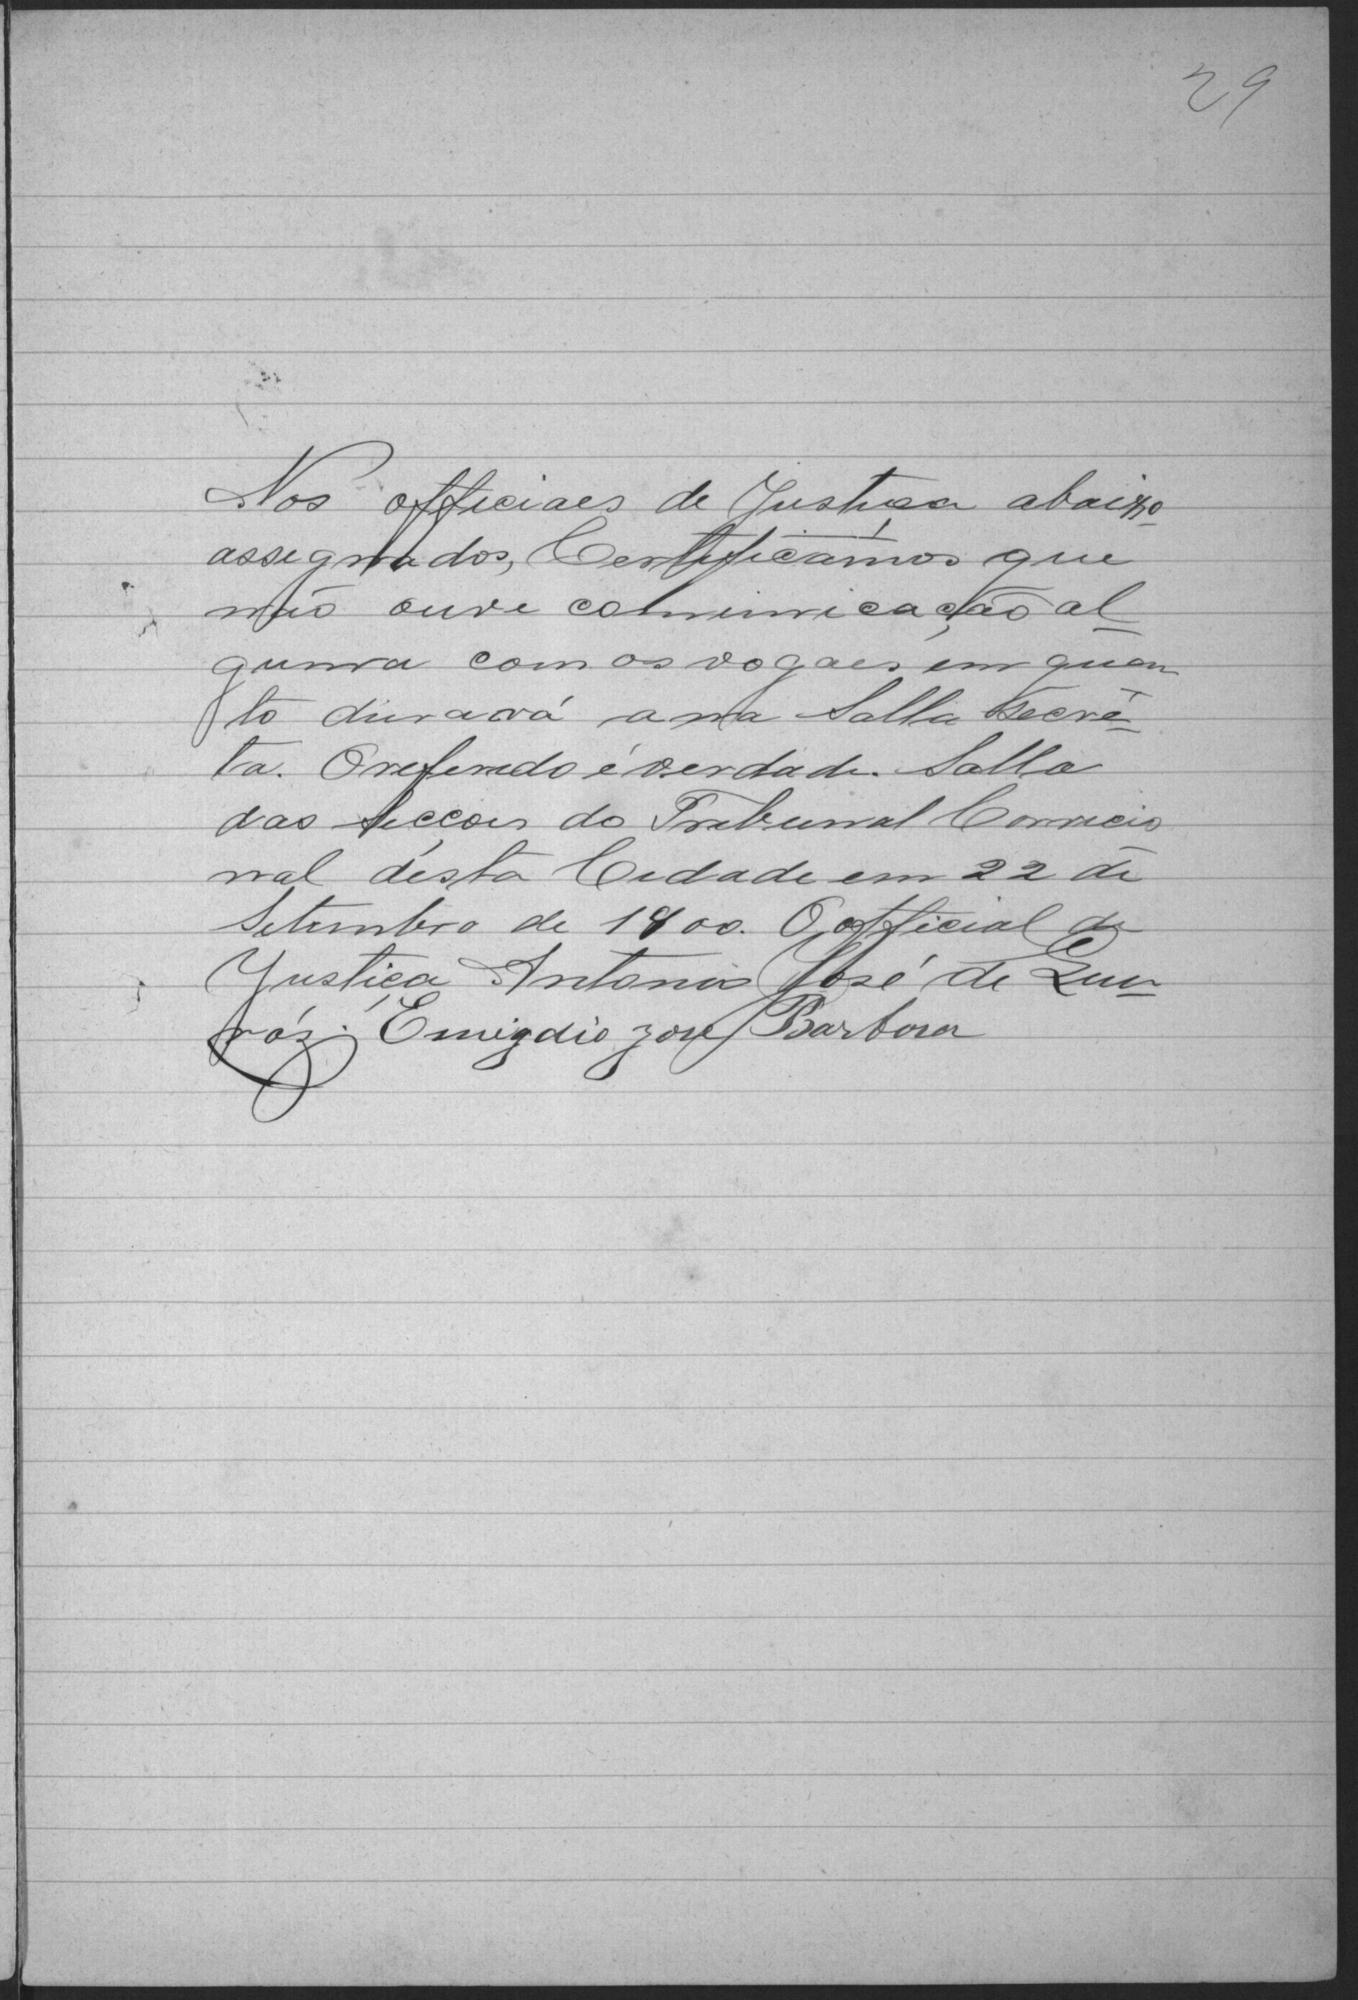 29
Nos officiaes de Justiça abaixo
assegnados, Certificamos que
não ouve comunicação al
guma com os vogaes, em quan
to durará a na Salla Secré-
ta. O referido é verdade. Salla
das secçoes do Tribunal Correcio
nal désta Cidade em 22 de
Setembro de 1900. O official de
Justiça Antonio José de Quei
róz. Emigdio José Barbosa